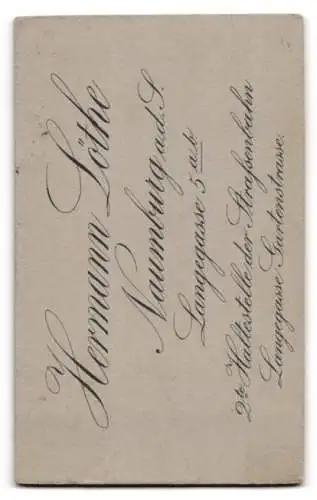 Hermann Löthe
Naumburg a.d. S.
Langegasse 5 a.b
2te Haltestelle der Straßenbahn
Langegasse Gartenstrasse.